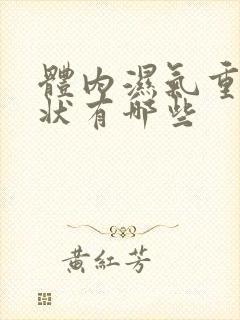 體內濕氣重
狀有哪些
黃紅芳